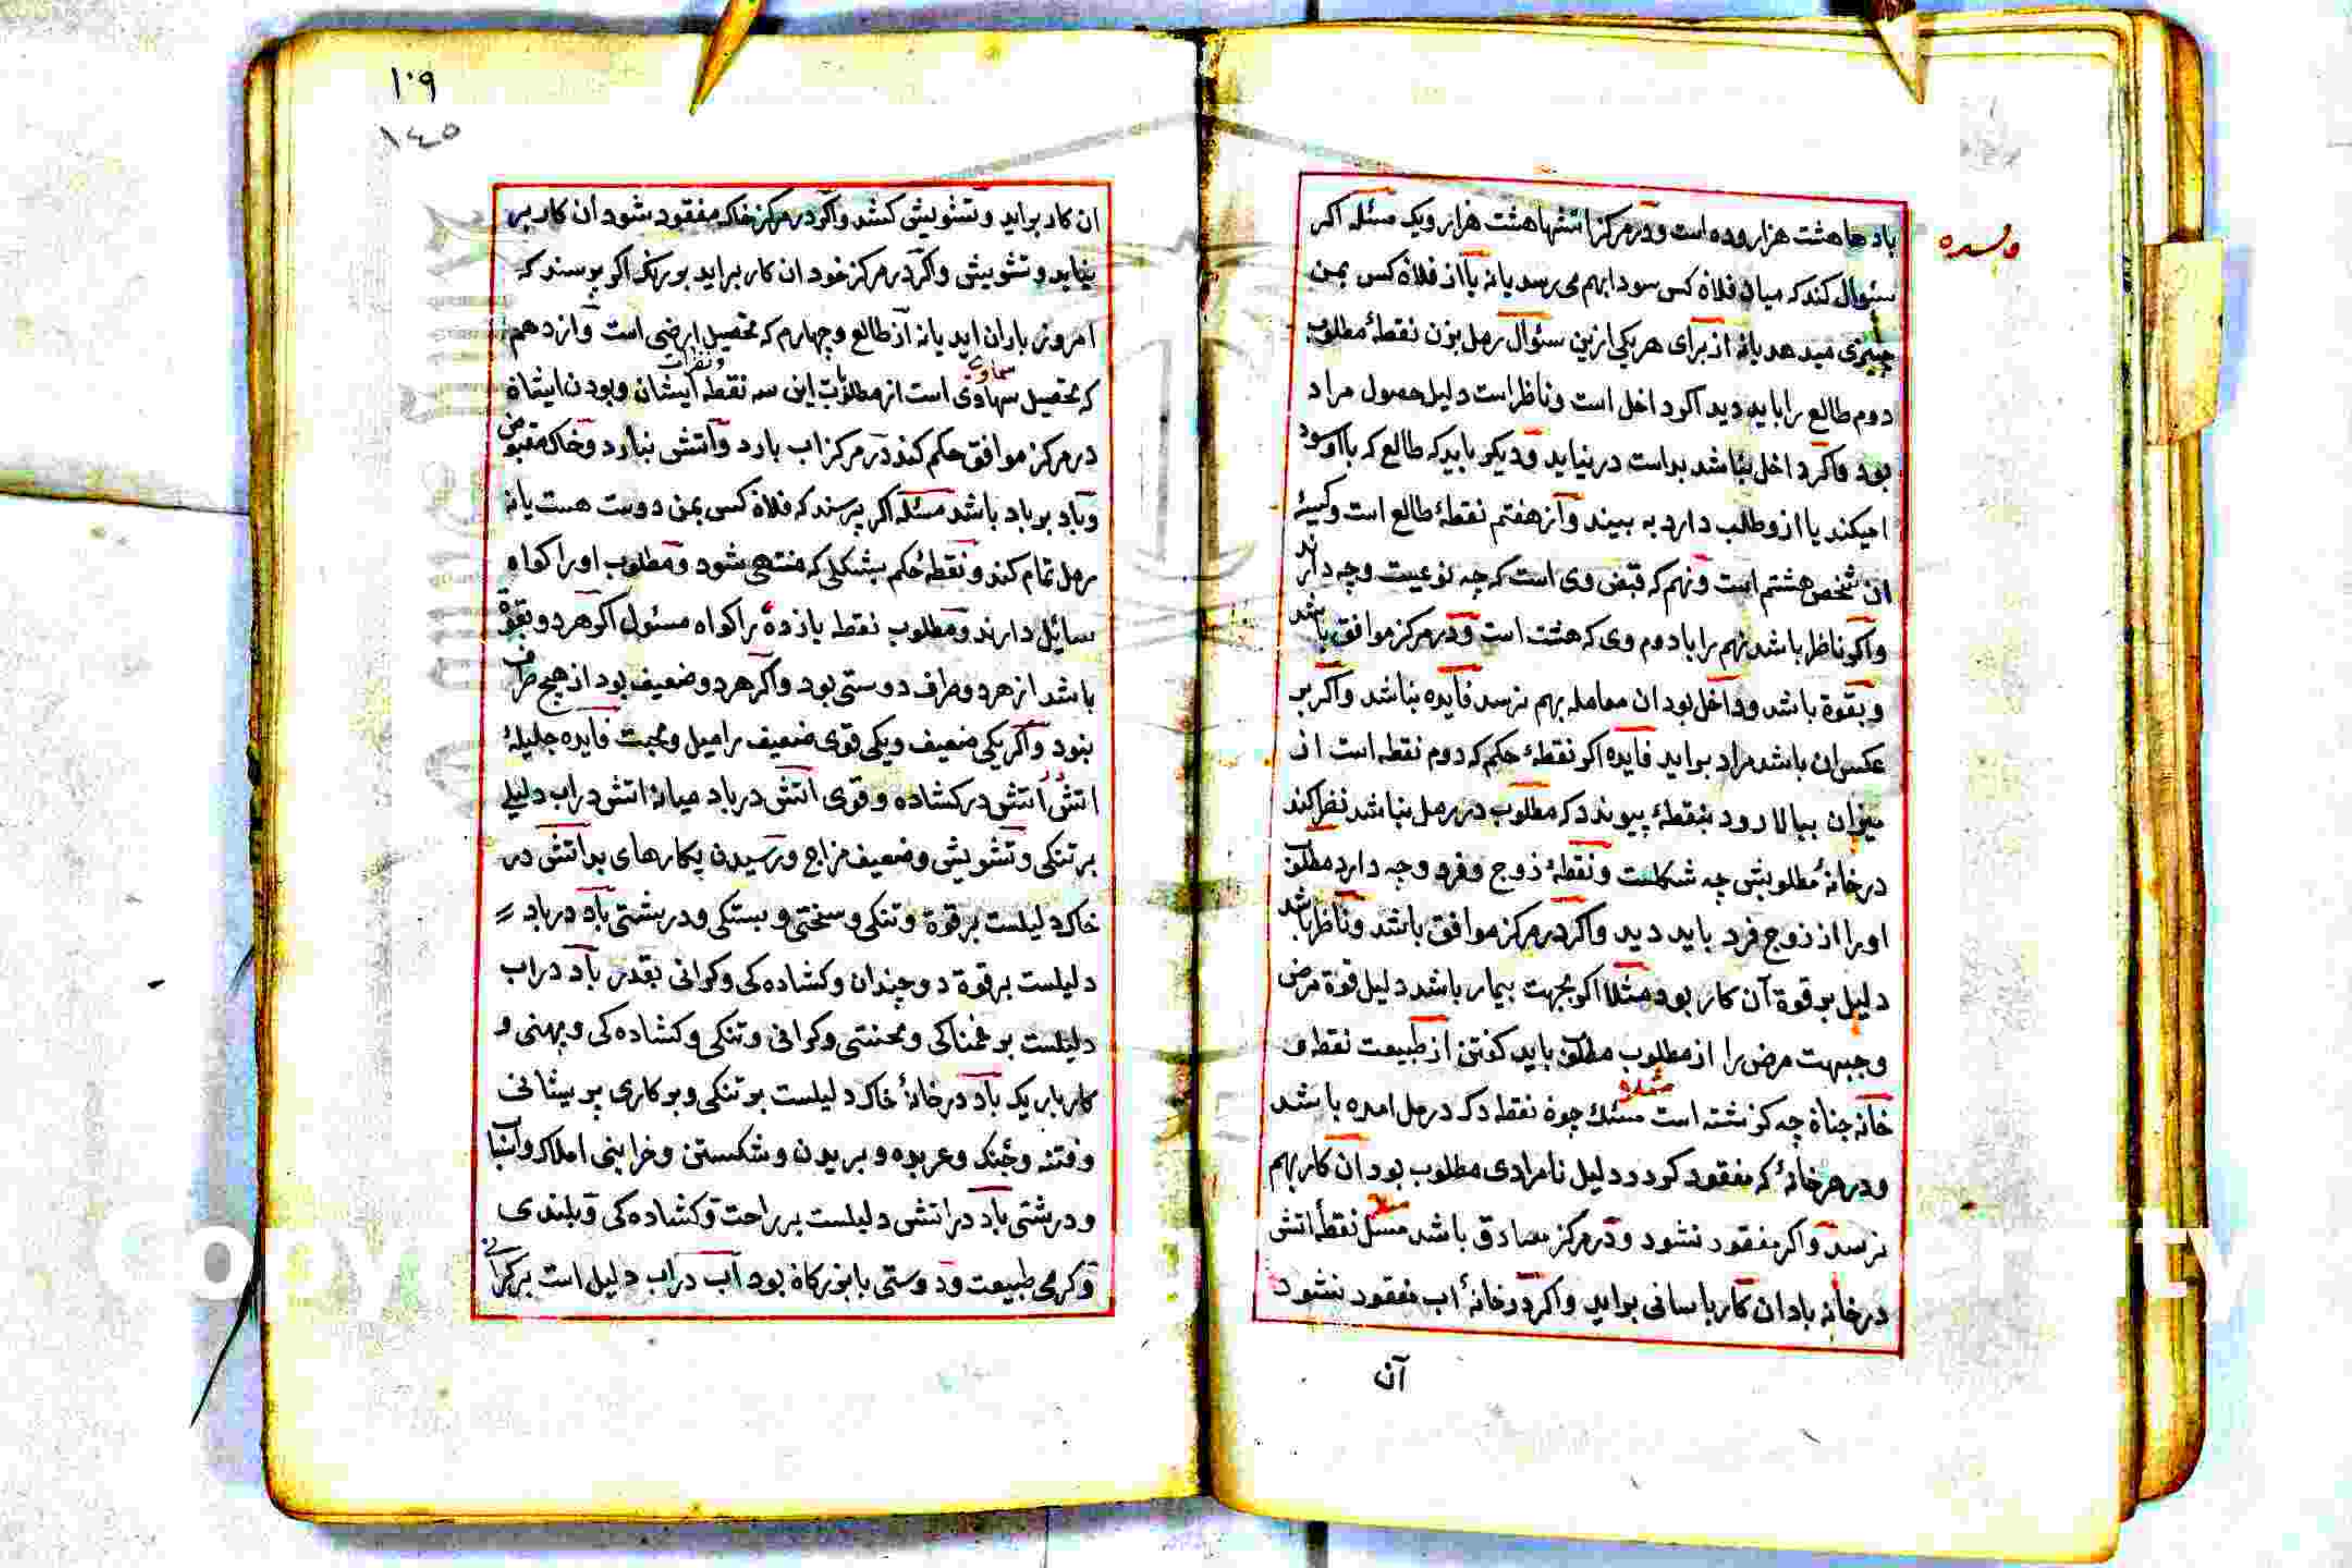 باد هاهشت هزار وده است ودر مرکز اتشها هشت هزار ویک مسئله اکر
سئوال کند که میان فلان کس سودا بهم می رسد یا نه یا از فلان کس بمن
چیزی میدهد یا نه از برای هر یکی ازین سئوال رمل بزن نقطهٔ مطلوب
دوم طالع را باید دید اکر داخل است وناظر است دلیل حصول مراد
بود واکر داخل نباشد بداست در نیاید ودیکر باید که طالع که با او سود
امیکند یا ازو طلب دارد به ببیند واز هفتم نقطهٔ طالع است وکیسهٔ
ان شخص هشتم است ونهم که قبض وی است که چه نوعیت وچه دارند
واکر ناظر باشد نهم را با دوم وی که هشت است ودر مرکز موافق باشد
وبقوة باشد وداخل بود ان معامله بهم نرسد فایده نباشد واکر بر
عکس ان باشد مراد براید فایده اکر نقطهٔ حکم که دوم نقطه است از
میزان ببالا رود بنقطهٔ پیوندد که مطلوب در رمل نباشد نظر کند
در خانهٔ مطلوبش چه شکلست ونقطهٔ زوج وفرد وجه دارد مطلوب
اورا از زوج فرد باید دید واکر در مرکز موافق باشد وناظر باشد
دلیل بر قوة آن کار بود مثلا اکر بجهت بیمار باشد دلیل قوة مرض
وجبهت مرض را از مطلوب مطلوب باید کفتن از طبیعت نقطه و
خانه جناة چه کزشته است مسئله چون نقطه دکه در رمل امده باشد
ودر هر خانهٔ که مفقود کردد دلیل نامرادی مطلوب بود ان کار بهم
نرسد واکر مفقود نشود ودر مرکز مصادق باشد مسئله نقطهٔ اتش
در خانه باد ان کار باسانی براید واکر در خانهٔ اب مفقود نشود
آن
١٠٩
١٤٥
ان کار براید وتشویش کشد واکر در مرکز خاک مفقود شود ان کار بر
نیاید وتشویش واکر در مرکز خود ان کار براید بو رنک اکر پرسند که
امروز باران اید یا نه از طالع وچهارم که تحصیل ارضی است واز دهم
که تحصیل سماوی است از مطلوبات این سه نقطه ونظرات ایشان وبودن ایشان
در مرکز موافق حکم کند در مرکز اب بارد واتش نبارد وخاک مقبوض
وباد بر باد باشد مسئله اکر پرسند که فلان کس بمن دوست هست یا نه
رمل تمام کند ونقطه حکم بشکلی که منتهی شود ومطلوب اورا کواه
سائل دارند ومطلوب نقطه یازده را کواه مسئول اکر هر دو بقوة
باشد از هر دو طرف دوستی بود واکر هر دو ضعیف بود از هیچ طرف
بنود واکر یکی ضعیف ویکی قوی ضعیف را میل ومحبت فایده جلیلهٔ
اتش اتش در کشاده وقوی اتش در باد میانه اتش در اب دلیل
بر تنکی وتشویش وضعیف مزاج ورسیدن بکارهای بد اتش در
خاک دلیلست بر قوة وتنکی وسختی وبستکی ودرشتی باد در باد
دلیلست بر قوة دوچندان وکشاده کی وکرانی بقدر باد در اب
دلیلست بر غمناکی ومحنتی وکرانی وتنکی وکشاده کی وپهنی و
کار باریک باد در خانهٔ خاک دلیلست بر تنکی وبر کاری پریشانی
وفتنه وجنک وعربده وبریدن وشکستن وخرابی املاک واسبا
ودرشتی باد در اتش دلیلست بر راحت وکشاده کی وبلندی
وکرمی طبیعت ودوستی با بزرکان بود آب در اب دلیل است بر کرانی